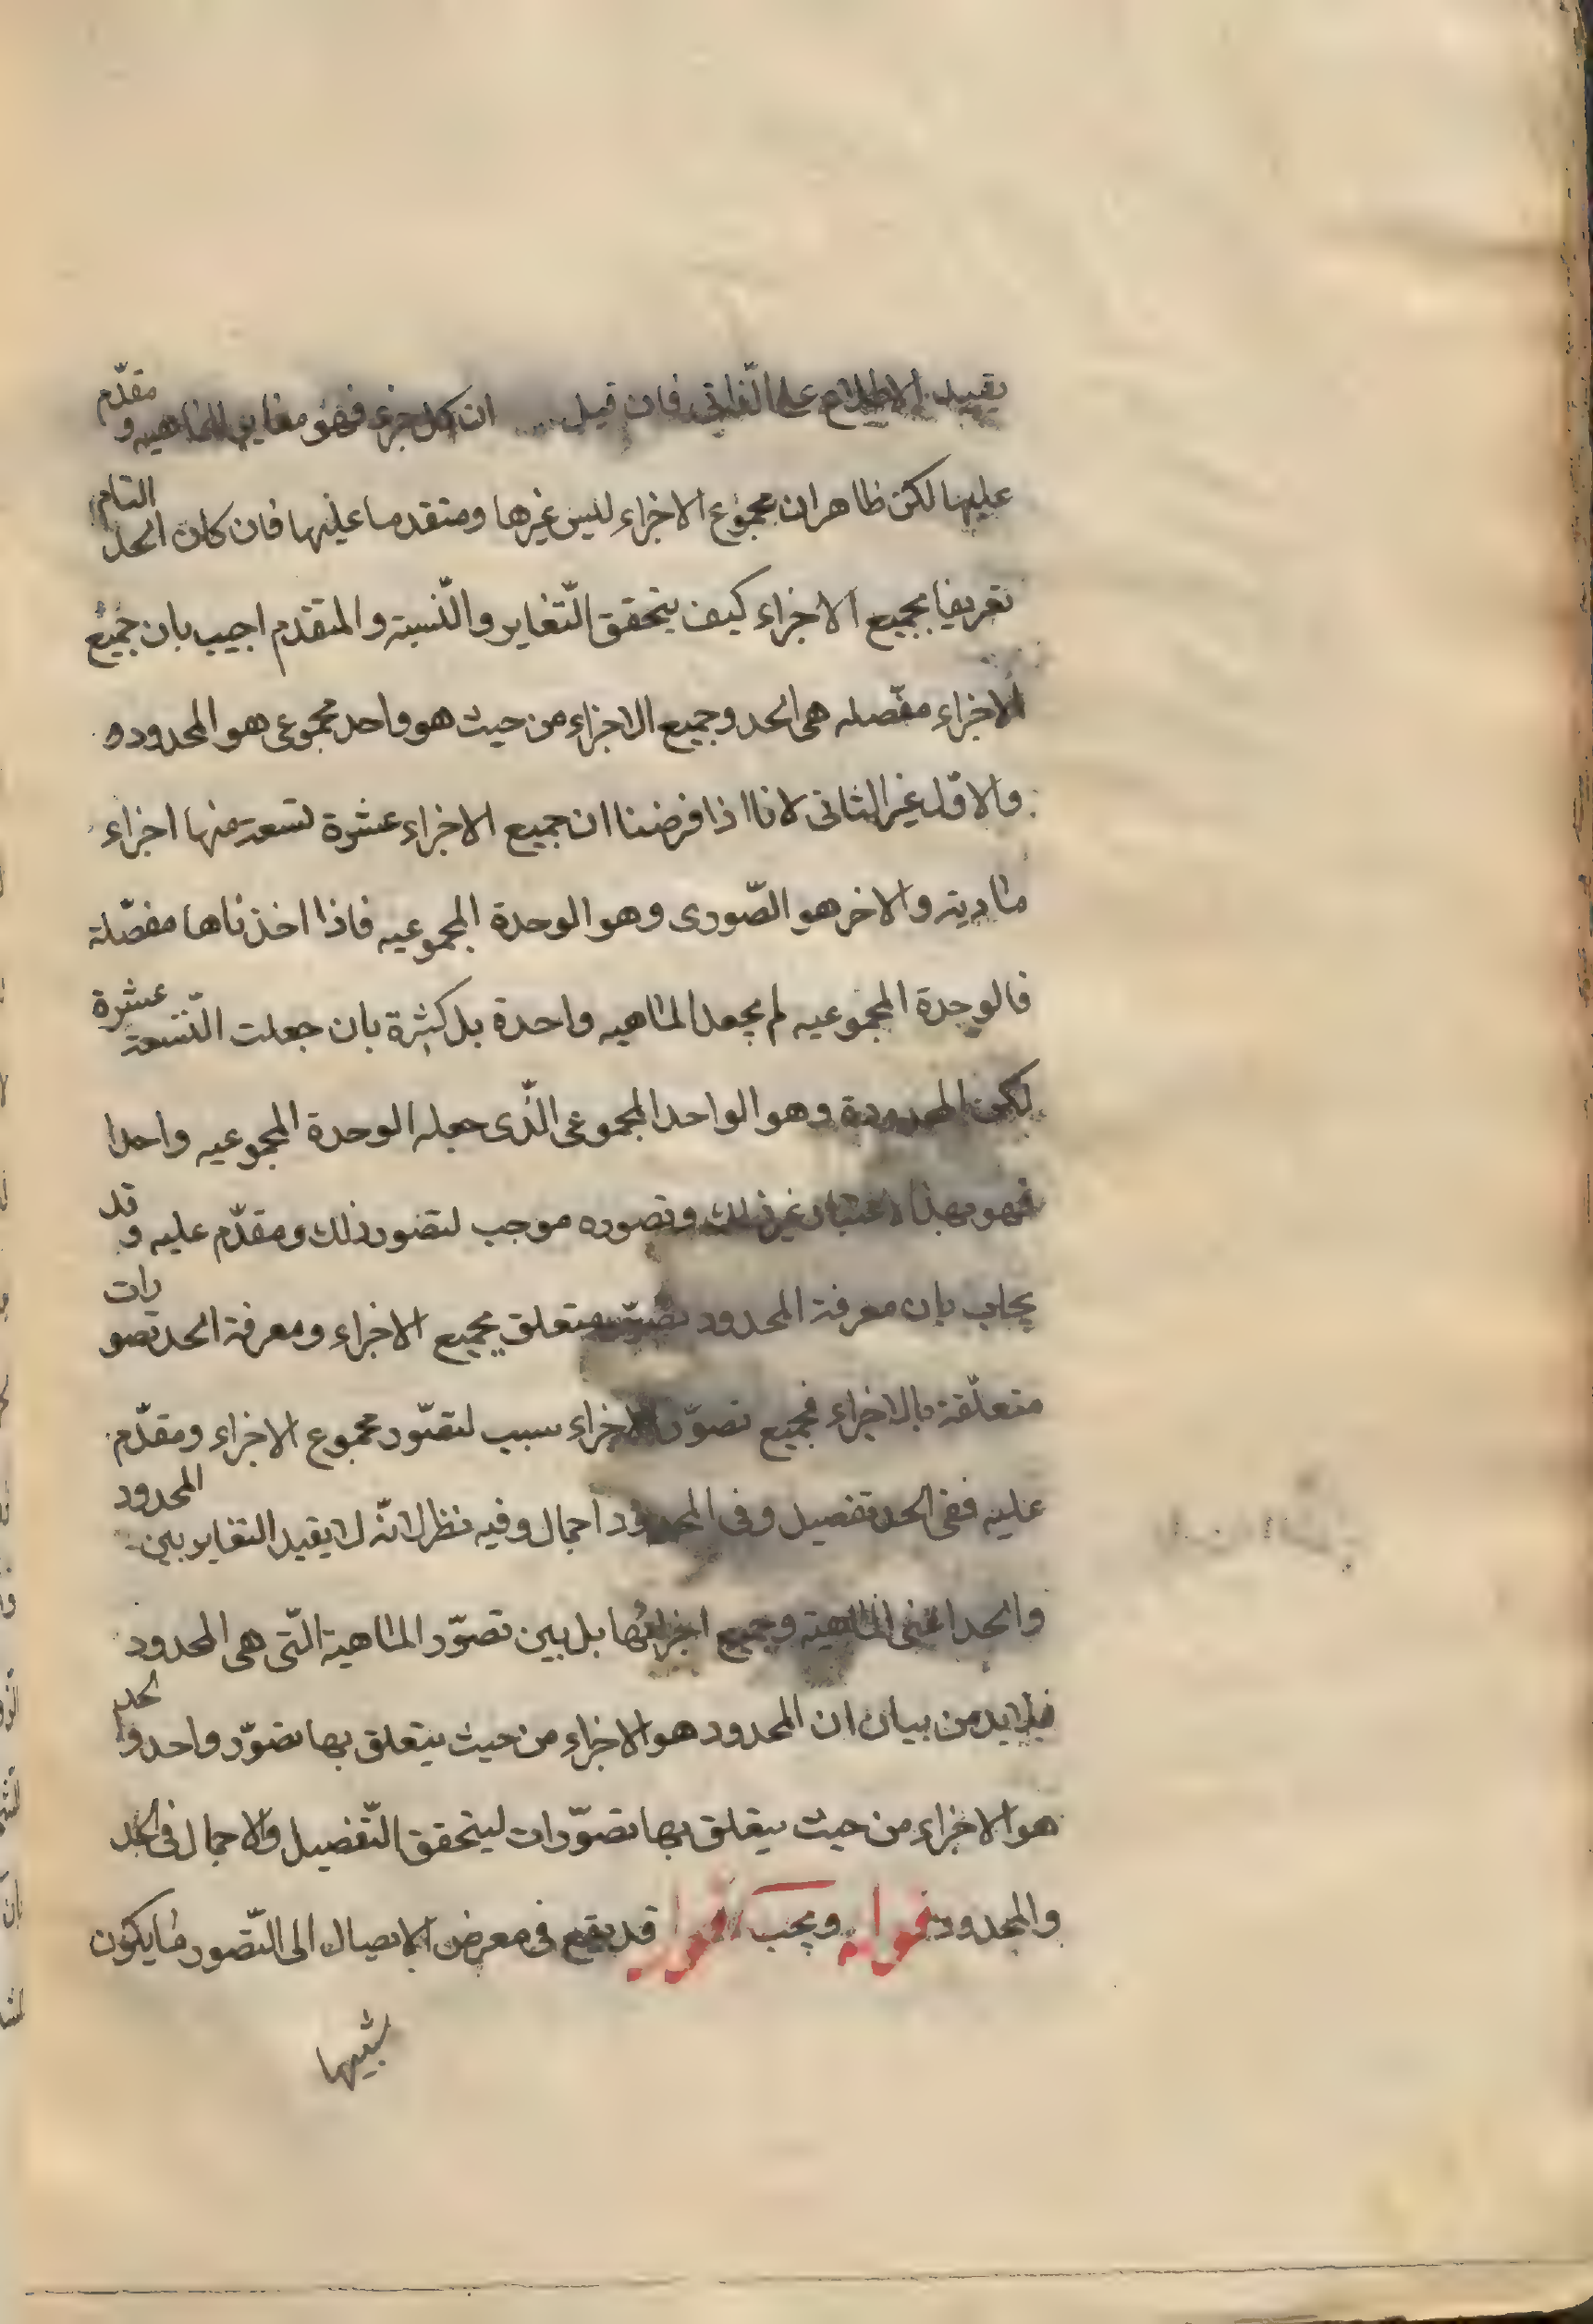 يفيد الاطلاع على الذاتى فان قيل ان كل جزء فهو مغاير للماهيه و مقدّم
عليها لكن ظاهر ان مجموع الاجزاء ليس غيرها ومتقدما عليها فان كان الحد التام
تعريفا بجميع الاجزاء كيف يتحقق التّغاير والنّسبة والمتقدّم اجيب بان جميع
الاجزاء مفصّله هى الحد وجميع الاجزاء من حيث هو واحد مجموعى هو المحدود و
والاوّل غير الثانى لانا اذا فرضنا ان جميع الاجزاء عشرة تسعة منها اجزاء
مادية والاخر هو الصّورى وهو الوحدة المجموعيه فاذا اخذناها مفصّلة
فالوحدة المجموعيه لم يجعل الماهيه واحدة بل كثيرة بان جعلت التّسعة عشرة
لكون المحدودة وهو الواحد المجموعى الذّى جعله الوحدة المجموعيه واحدا
فهو بهذا الاعتبار غير ذلك وتصوره موجب لتصور ذلك ومقدّم عليه و قد
يجاب بان معرفة المحدود تصوّر متعلق بجميع الاجزاء ومعرفة الحد تصورات
متعلّقة بالاجزاء فجميع تصوّر الاجزاء سبب لتصّور مجموع الاجزاء ومقدّم
عليه ففى الحد تفصيل وفى المحدود اجمال وفيه نظر لانّه لا يفيد التغاير بين المحدود
والحد اعنى الماهية وجميع اجزائها بل بين تصوّر الماهية التّى هى المحدود
فلا بد من بيان ان المحدود هو الاجزاء من حيث يتعلق بها تصوّر واحد والحد
هو الاجزاء من حيث يتعلق بها تصوّرات ليتحقق التّفصيل والاجمال فى الحد
والمحدود قوله ويجب اقول قد يقع فى معرض الايصال الى التّصور ما يكون
شبيها